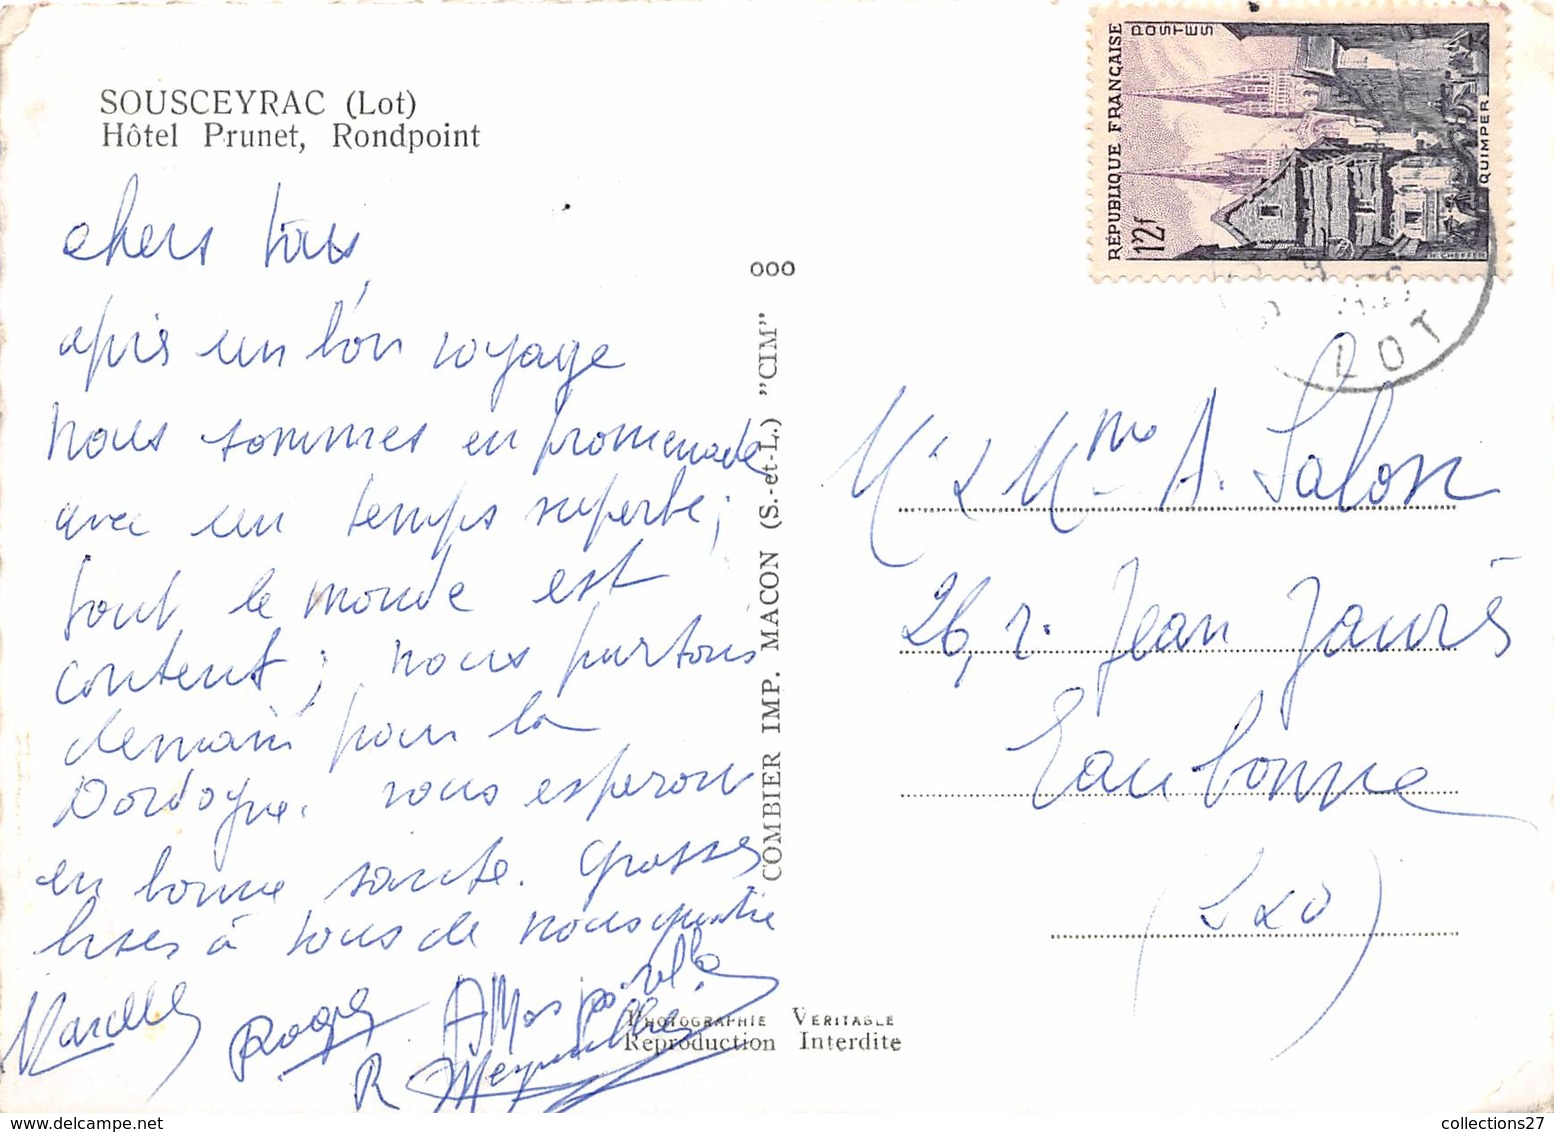 SOUSCEYRAC (Lot)
Hôtel Prunet, Rondpoint
chers tous
après un bon voyage
nous sommes en promenade
avec un temps superbe ;
tout le monde est
content ; nous partons
demain pour la
Dordogne. nous esperons
en bonne santé. Grosses
bises à tous de nous quatre
Marcelle Roger
R.
000
COMBIER IMP. MACON (S.-et-L.) "CIM"
PHOTOGRAPHIE VERITABLE
Reproduction Interdite
RÉPUBLIQUE FRANÇAISE
POSTES
12f
QUIMPER
H. CHEFFER
LOT
Mr & Mme A. Salon
26, r. Jean Jaurès
Eaubonne
(S & O)
collections27